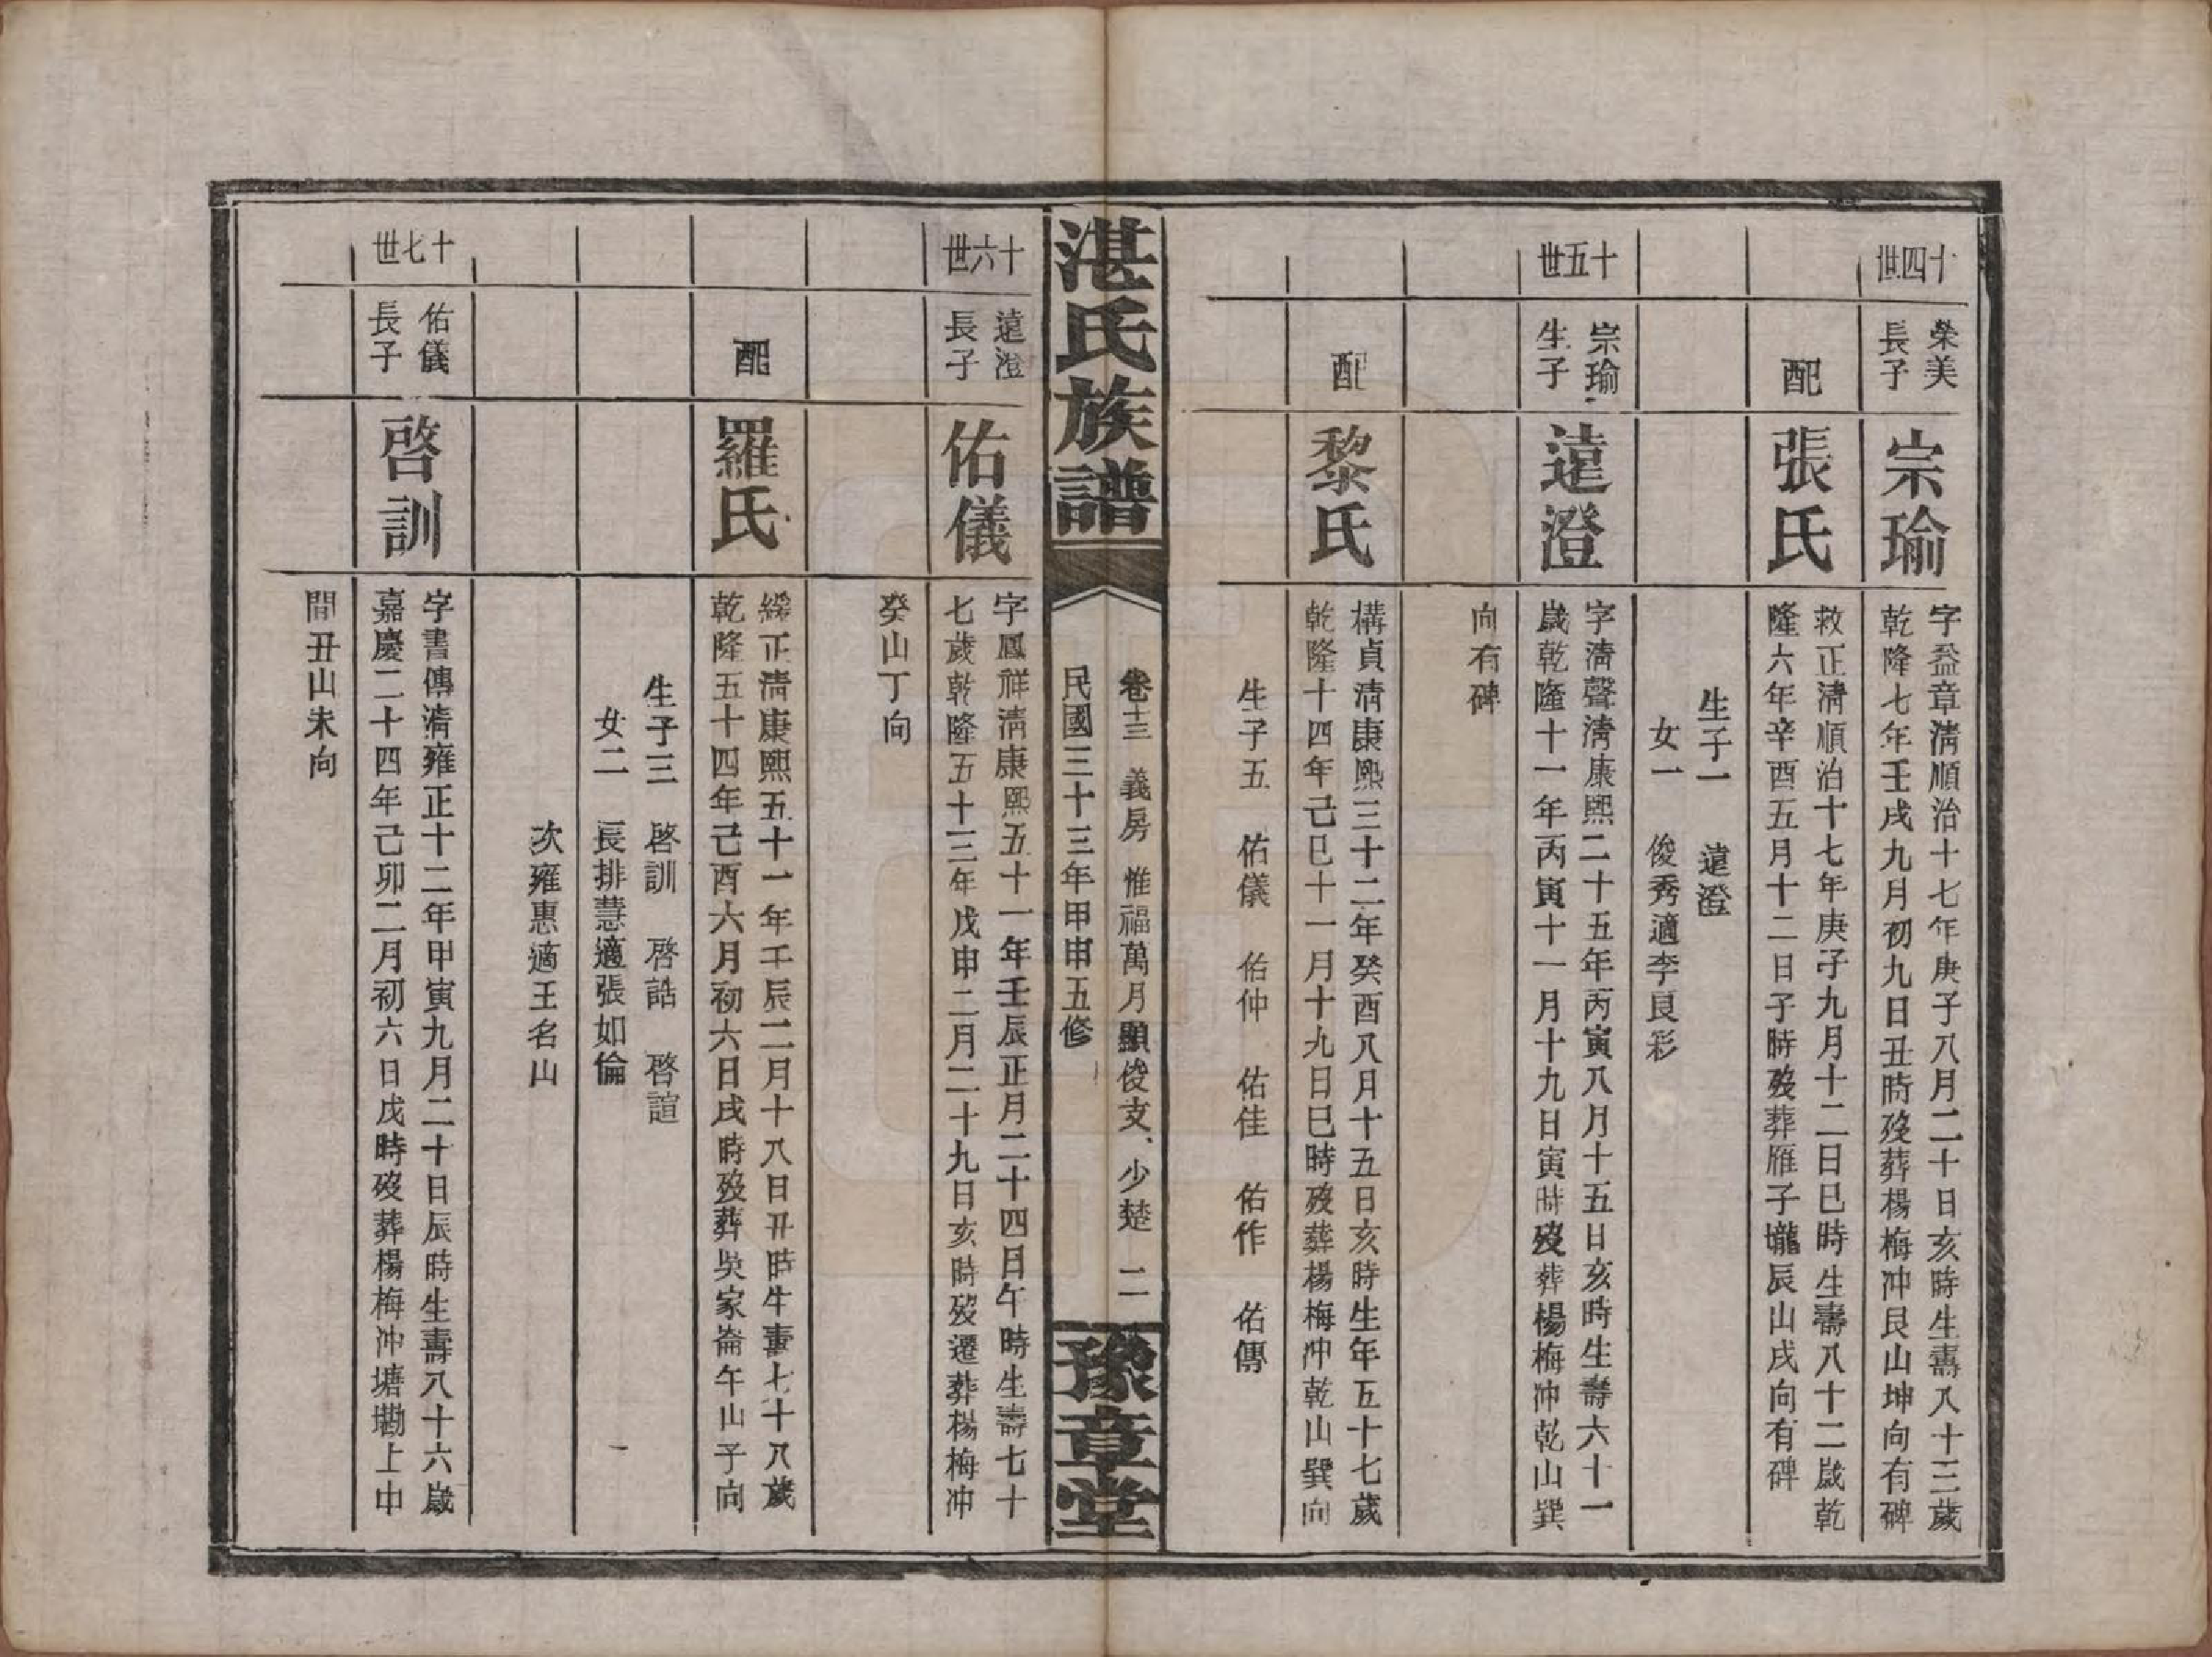 十四世
榮美
長子
宗瑜
字益章清順治十七年庚子八月二十日亥時生壽八十三歲
乾隆七年壬戌九月初九日丑時歿葬楊梅冲艮山坤向有碑
配
張氏
救正清順治十七年庚子九月十二日巳時生壽八十二歲乾
隆六年辛酉五月十二日子時歿葬雁子壠辰山戌向有碑
生子一 遠澄
女一 俊秀適李良彩
十五世
宗瑜
生子
遠澄
字清聲清康熙二十五年丙寅八月十五日亥時生壽六十一
歲乾隆十一年丙寅十一月十九日寅時歿葬楊梅冲乾山巽
向有碑
配
黎氏
構貞清康熙三十二年癸酉八月十五日亥時生年五十七歲
乾隆十四年己巳十一月十九日巳時歿葬楊梅冲乾山巽向
生子五 佑儀 佑仲 佑佳 佑作 佑傳
湛氏族譜
卷十三 義房 惟福萬月顯俊支、少楚 二
民國三十三年甲申五修
豫章堂
十六世
遠澄
長子
佑儀
字鳳祥清康熙五十一年壬辰正月二十四日午時生壽七十
七歲乾隆五十三年戊申二月二十九日亥時歿遷葬楊梅冲
癸山丁向
配
羅氏
緩正清康熙五十一年壬辰二月十八日丑時生壽七十八歲
乾隆五十四年己酉六月初六日戌時歿葬吳家崙午山子向
生子三 啓訓 啓誥 啓諠
女二 長排慧適張如倫
次雍惠適王名山
十七世
佑儀
長子
啓訓
字書傳清雍正十二年甲寅九月二十日辰時生壽八十六歲
嘉慶二十四年己卯二月初六日戌時歿葬楊梅冲塘墈上中
間丑山未向